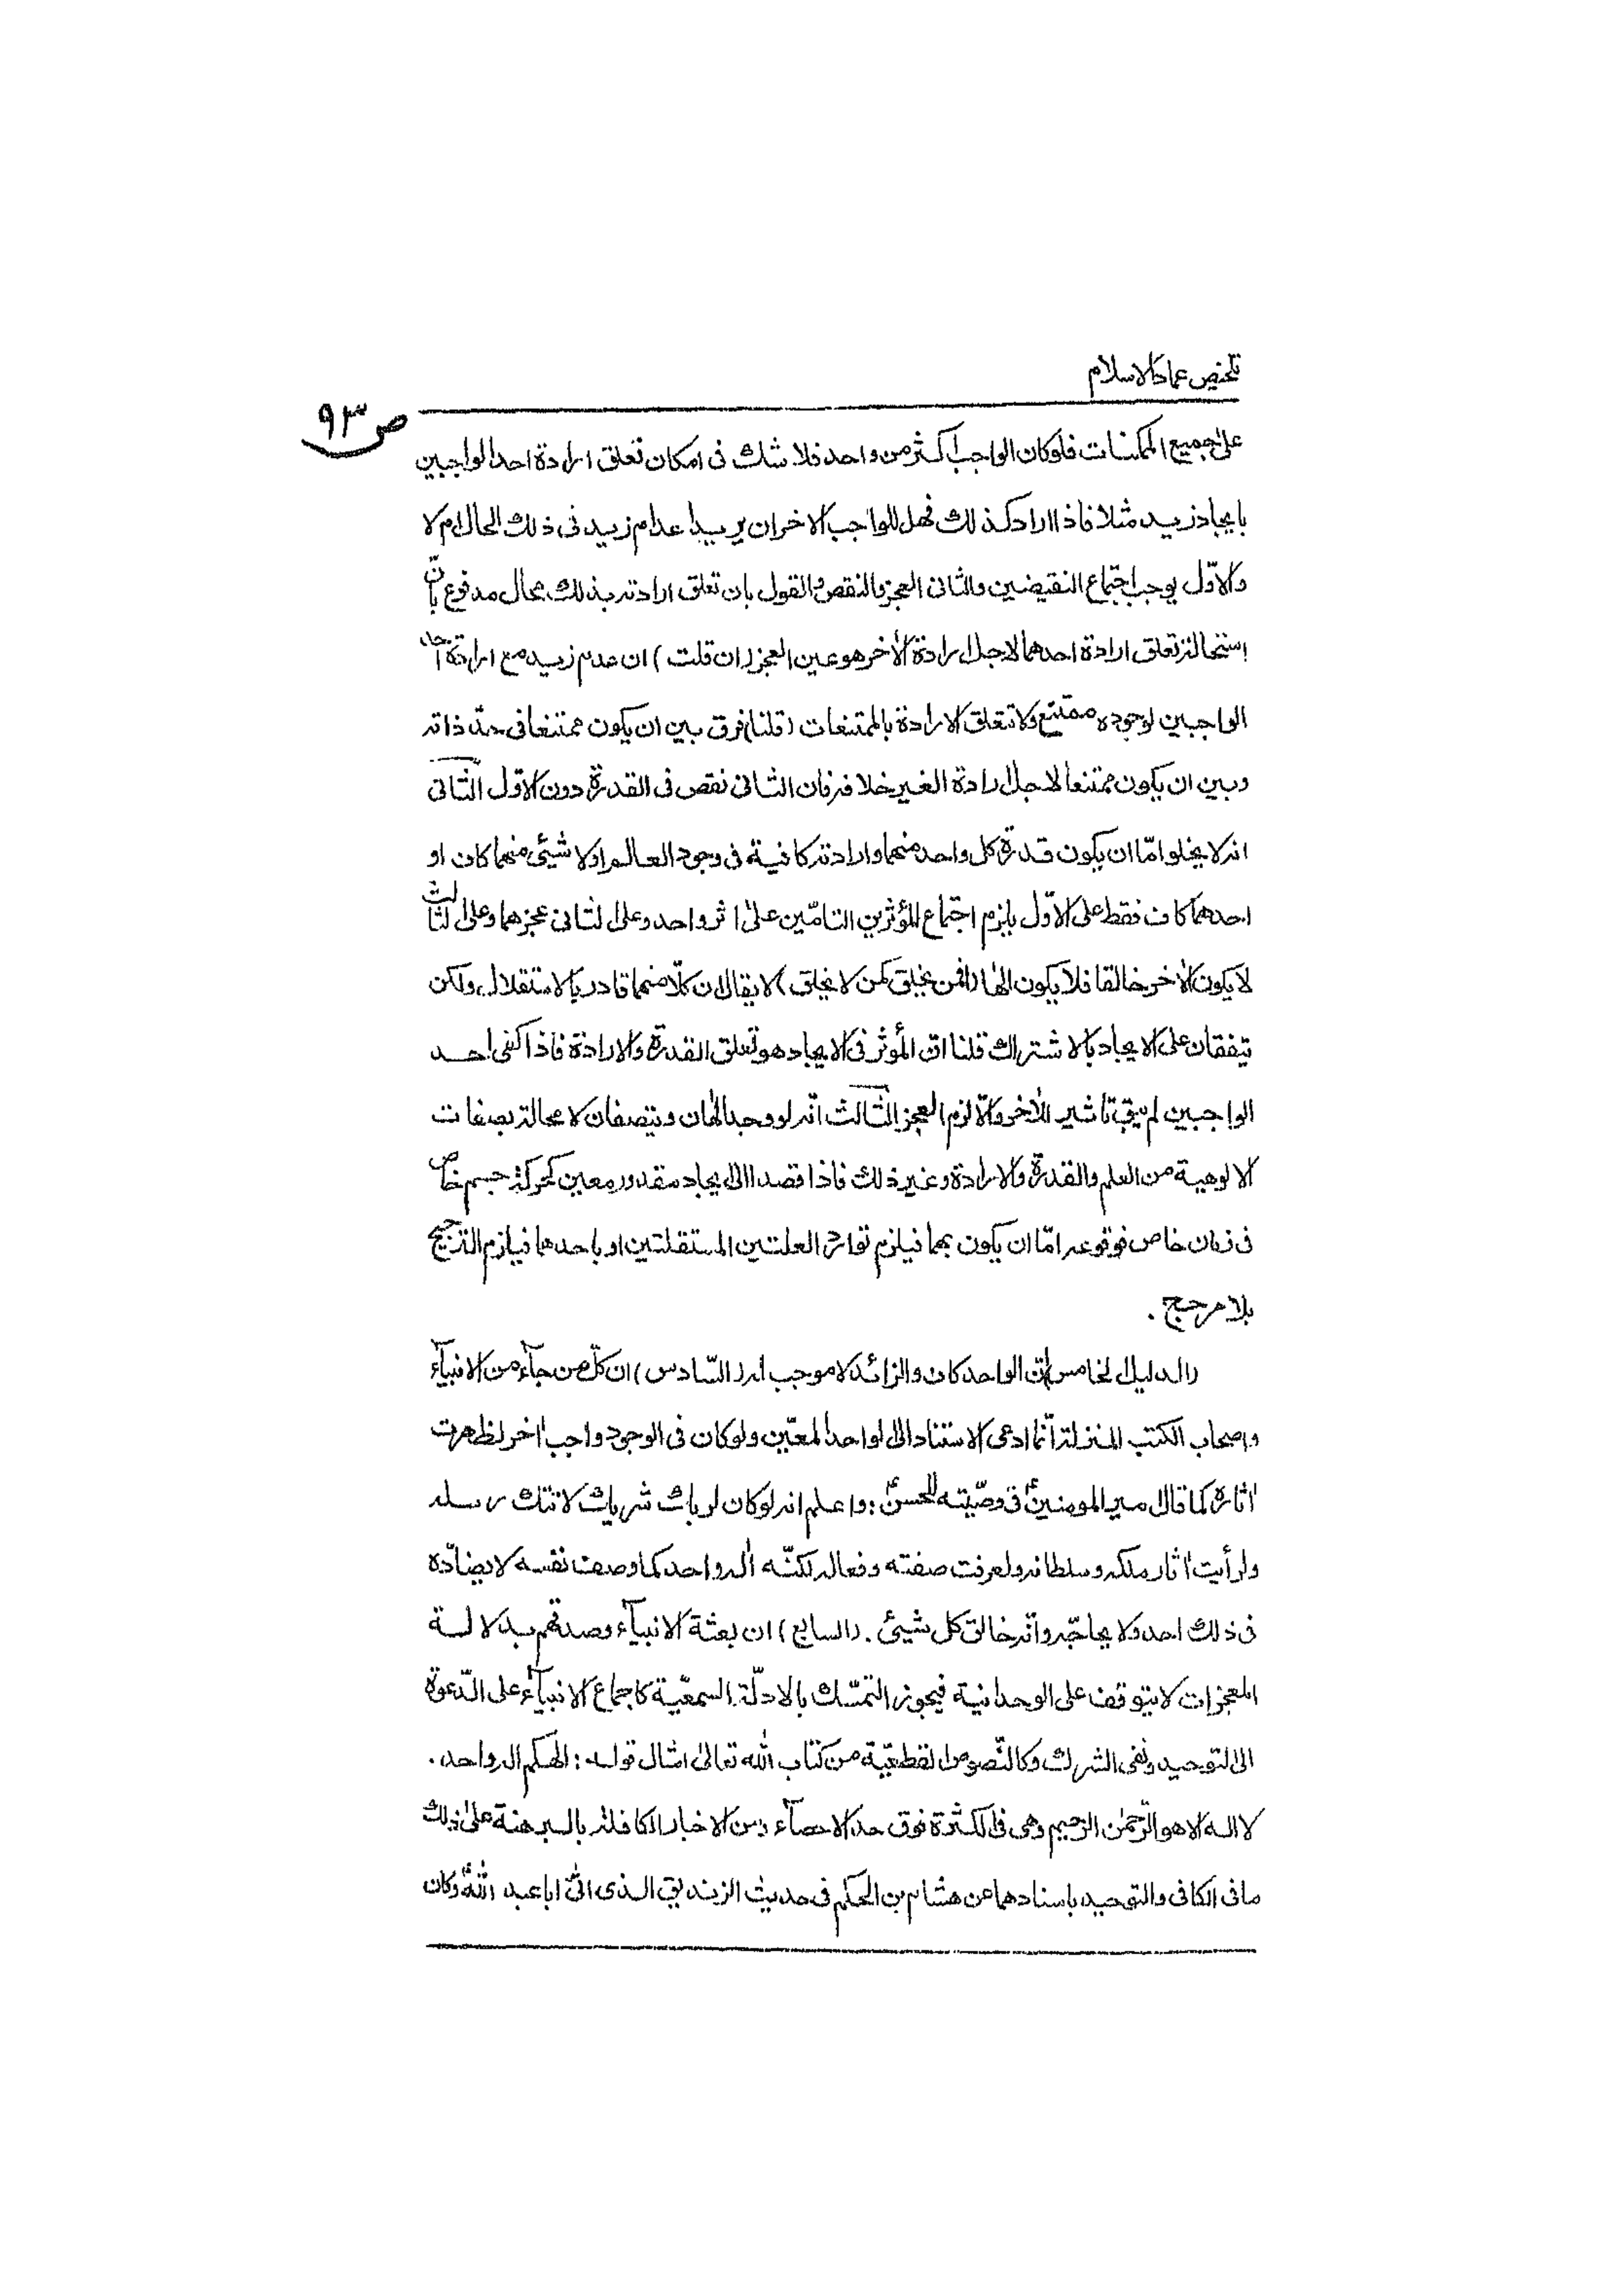 تلخيص عماد الاسلام
ص ٩٣
على جميع الممكنات فلو كان الواجب اكثر من واحد فلا شك فى امكان تعلق ارادة احد الواجبين
بايجاد زيد مثلا فاذا اراد كذلك فهل للواجب الاخر ان يريد اعدام زيد فى ذلك الحال ام لا
والاوّل يوجب اجتماع النقيضين والثانى العجز والنقص والقول بان تعلق ارادته بذلك محال مدفوع بانّ
استحالة تعلق ارادة احدهما لاجل ارادة الاٰخر هو عين العجز (ان قلت) ان عدم زيد مع ارادة احد
الواجبين لوجوده ممتنع ولا تتعلق الارادة بالممتنعات (قلنا) فرق بين ان يكون ممتنعا فى حدّ ذاته
وبين ان يكون ممتنعا لاجل ارادة الغير خلافه فان الثانى نقص فى القدرة دون الاوّل الثّانى
انه لا يخلو امّا ان يكون قدرة كل واحد منهما وارادته كافية فى وجود العالم اولا شيئى منهما كاف او
احدهما كاف فقط على الاوّل يلزم اجتماع المؤثرين التامّين علىٰ اثر واحد وعلى الثانى عجزهما وعلى الثالث
لا يكون الاٰخر خالقا فلا يكون الٰها (افمن يخلق كمن لا يخلق) لا يقال ان كلّا منهما قادر بالاستقلال ولكن
يتفقان على الايجاد بالاشتراك قلنا انّ المؤثر فى الايجاد هو تعلق القدرة والارادة فاذا كفى احد
الواجبين لم يبق تاثير للاٰخر والّا لزم العجز الثّالث انّه لو وجد الٰهان ويتصفان لا محالة بصفات
الالوهية من العلم والقدرة والارادة وغير ذلك فاذا قصدا الى ايجاد مقدور معين كحركة جسم خاص
فى زمان خاص فوقوعه امّا ان يكون بهما فيلزم توارد العلتين المستقلتين او باحدهما فيلزم الترجيح
بلا مرجح .
(الدليل الخامس) انّ الواحد كاف والزائد لا موجب له (السّادس) ان كلّ من جآء من الانبيآء
واصحاب الكتب المنزلة انّما ادعى الاستناد الى الواحد المعيّن ولو كان فى الوجود واجب اٰخر لظهرت
اٰثاره كما قال امير المومنينؑ فى وصيّته للحسنؑ : واعلم انه لو كان لربك شريك لاتتك رسله
ولرأيت اٰثار ملكه وسلطانه ولعرفت صفته وفعاله لكنّه الٰه واحد كما وصف نفسه لا يضادّه
فى ذلك احد ولا يحاجّه وانّه خالق كل شيئى . (السابع) ان بعثة الانبيآء وصدقهم بدلالة
المعجزات لا يتوقف على الوحدانية فيجوز التمسّك بالادلّة السمعيّة كاجماع الانبيآء على الدّعوة
الى التوحيد ونفى الشرك وكالنّصوص القطعيّة من كتاب اللّٰه تعالىٰ امثال قوله : الٰهكم اله واحد .
لا اله الا هو الرّحمٰن الرّحيم وهى فى الكثرة فوق حد الاحصآء ومن الاخبار الكافلة بالبرهنة علىٰ ذلك
ما فى الكافى والتوحيد باسنادهما عن هشام بن الحكم فى حديث الزنديق الذى اتىٰ ابا عبد اللّٰهؑ وكان